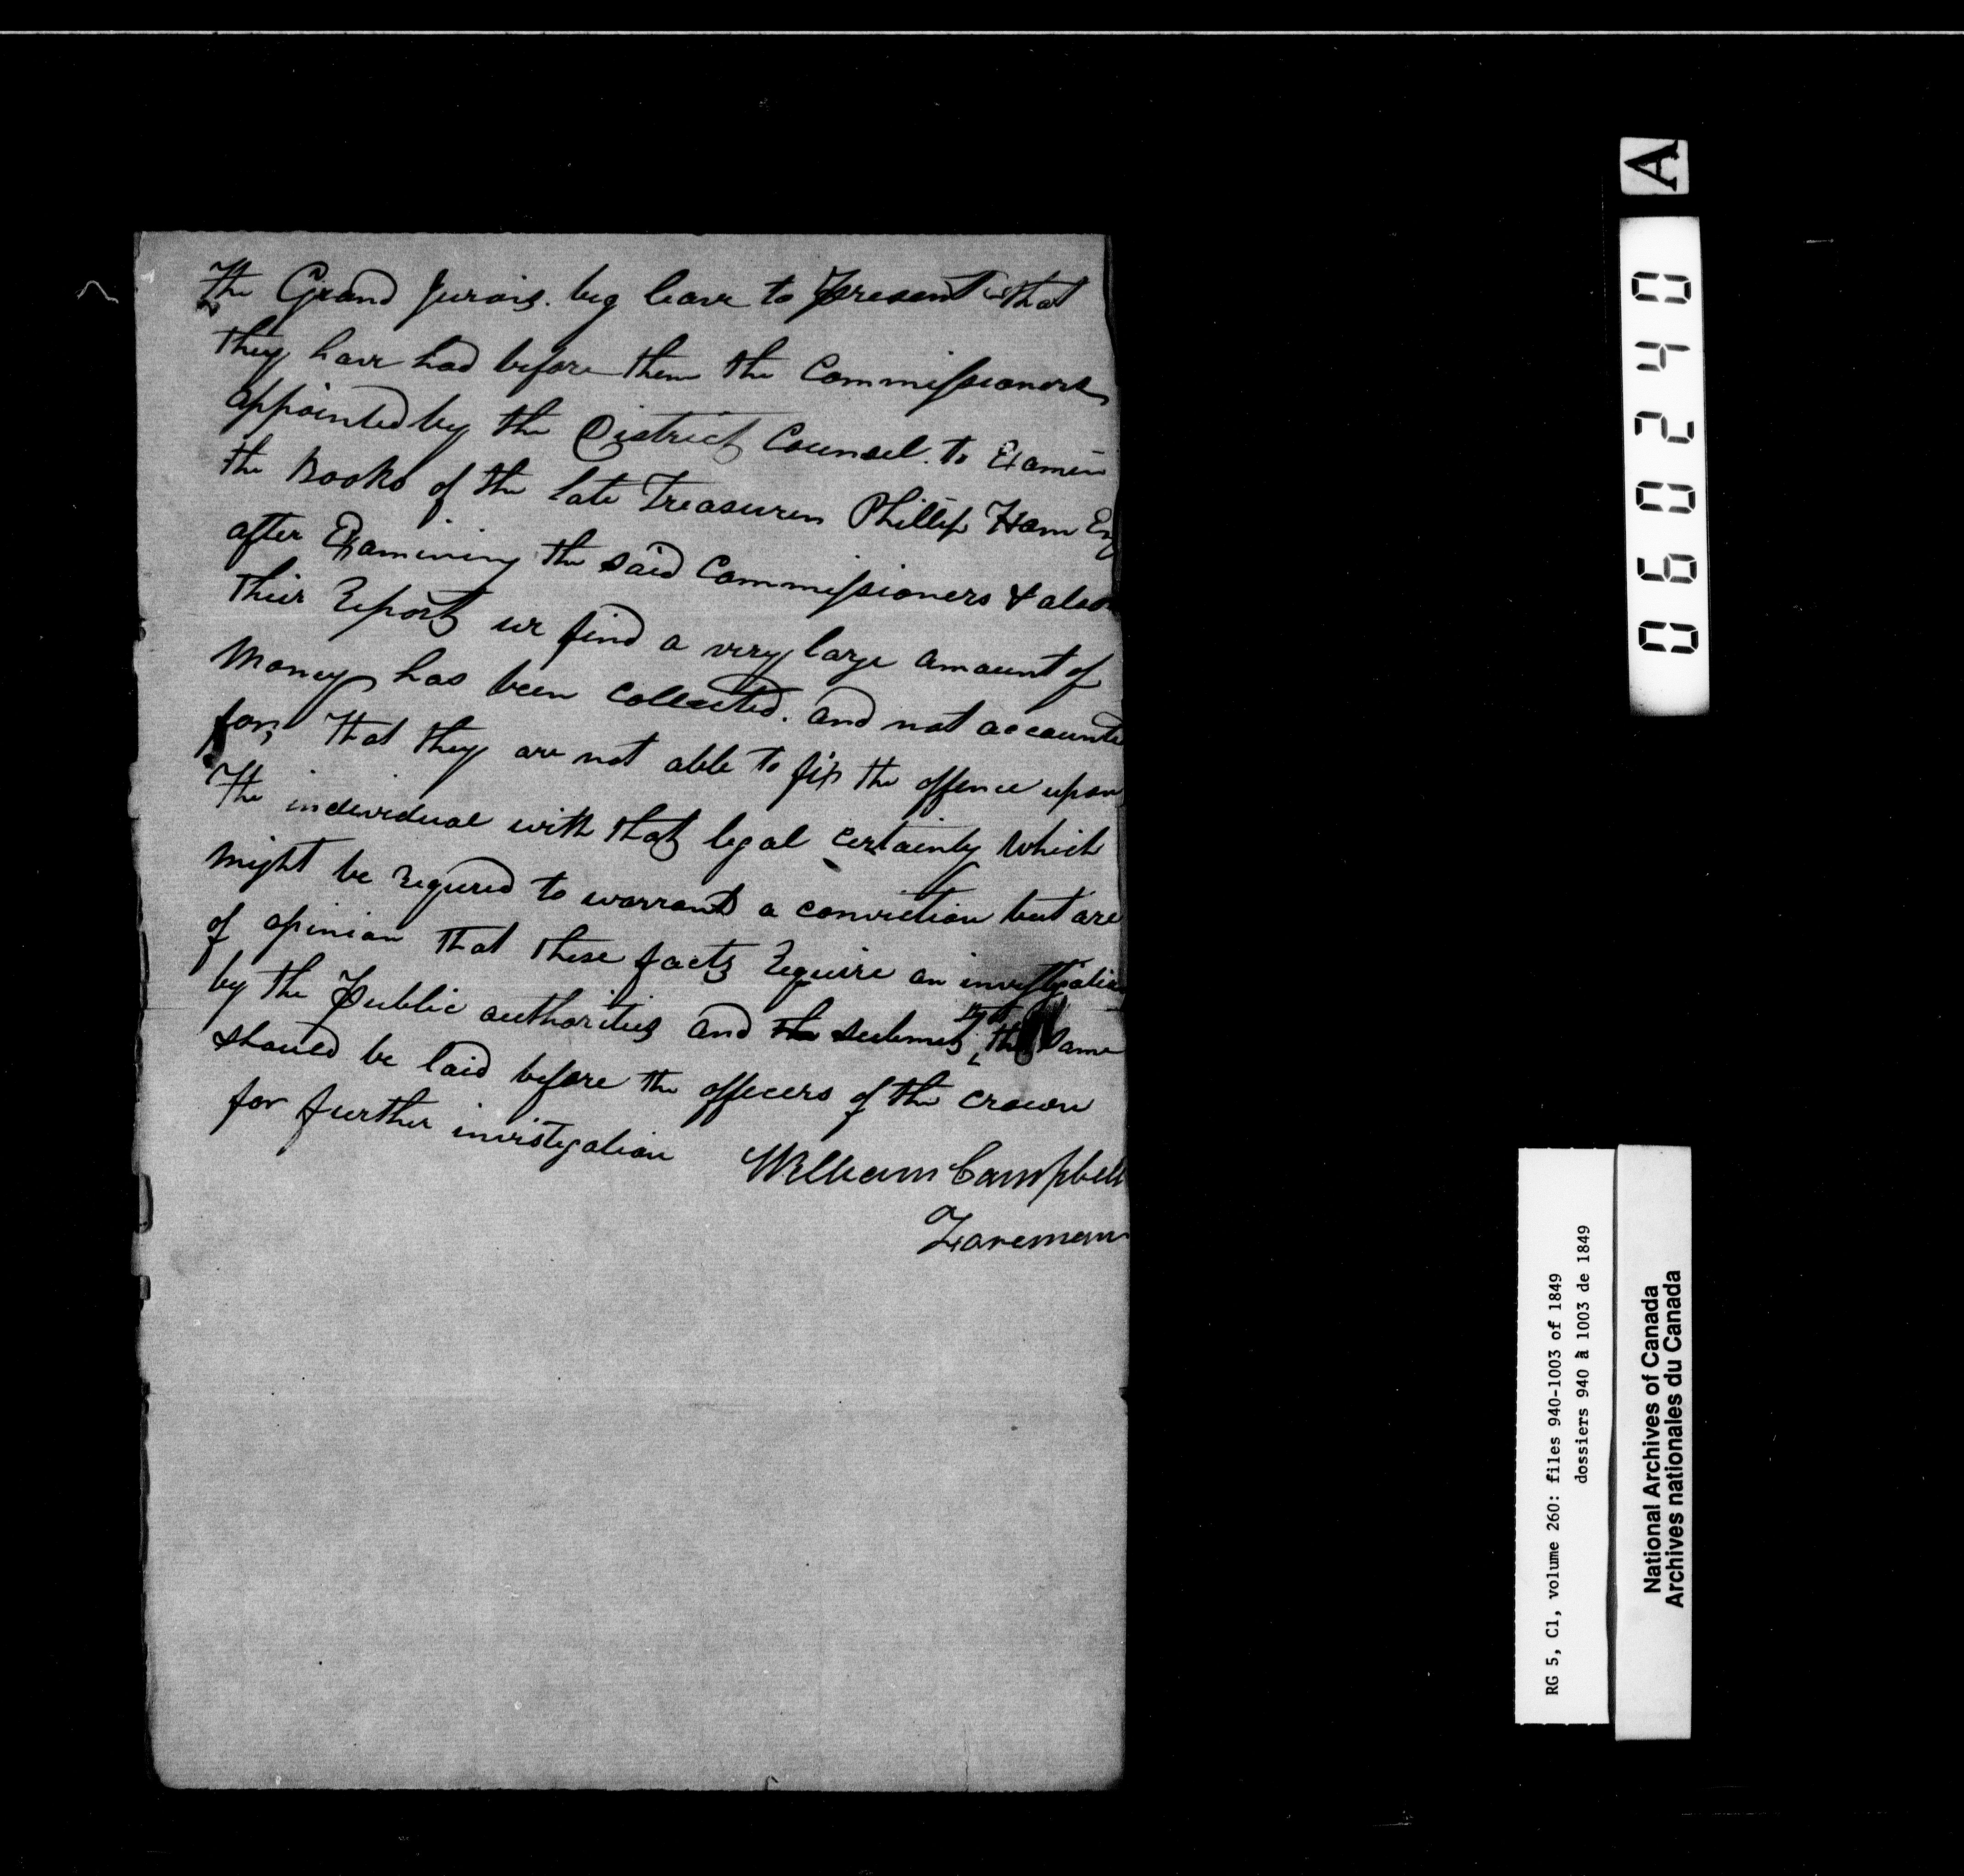 The Grand Jurors. beg leave to Present that
they have had before them the Commissioners
appointed by the District Counsel. to Examin
the Books of the late Treasurer Phillip Ham Esq
after Examining the said Commissioners & also
their Report we find a very large amount of
Money has been collected. and not accounted
for; that they are not able to fix the offence upon
the individual with that legal certainty which
might be requred to warrant a conviction but are
of opinion that these facts require an investigation
by the Public authorities and the submit that the same
should be laid before the officers of the crown
for further investigation
William Campbell
Foreman
A
060240
RG 5, C1, volume 260: files 940-1003 of 1849
dossiers 940 à 1003 de 1849
National Archives of Canada
Archives nationales du Canada